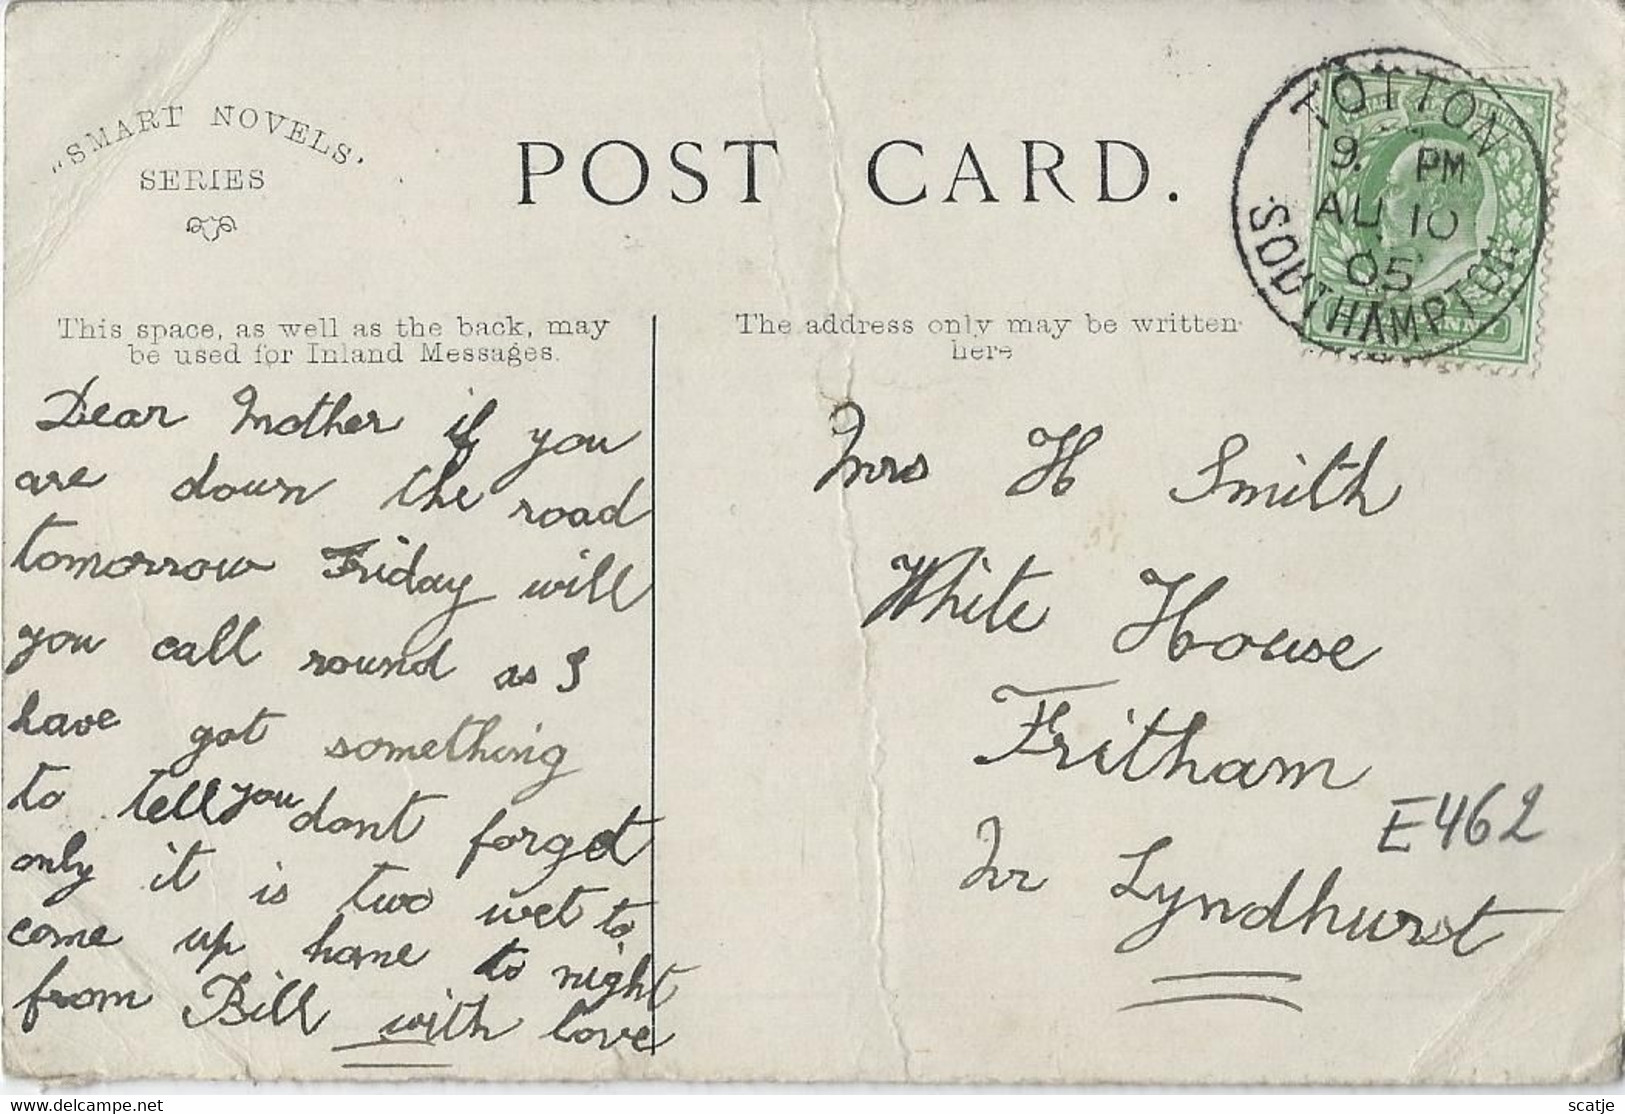 "SMART NOVELS'
SERIES
POST CARD.
TOTTON
9. PM
AU 10
05
SOUTHAMPTON
This space, as well as the back, may
be used for Inland Messages.
The address only may be written
here
Dear Mother if you
are down the road
tomorrow Friday will
you call round as I
have got something
to tell you dont forget
only it is two wet to
come up home to night
from Bill with love
Mrs H Smith
White House
Fritham
Nr Lyndhurst
E462
Delcampe.net
scatje